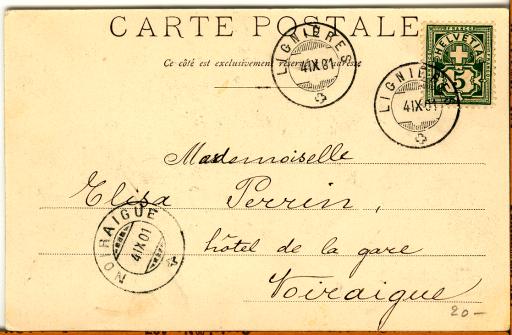 CARTE POSTALE
Ce côté est exclusivement réservé à l'adresse
LIGNIÈRES
4 IX 01
FRANCO
HELVETIA
5
LIGNIÈRES
4 IX 01
Mademoiselle
Elisa Perrin,
NOIRAIGUE
4 IX 01
hôtel de la gare
Noiraigue
20-